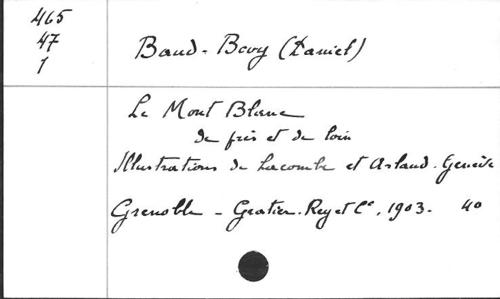 465
47
1
Baud-Bovy (Daniel)
Le Mont Blanc
de près et de loin
Illustrations de Lacombe et Arlaud. Genève
Grenoble - Gratier. Rey et Cie, 1903. 40